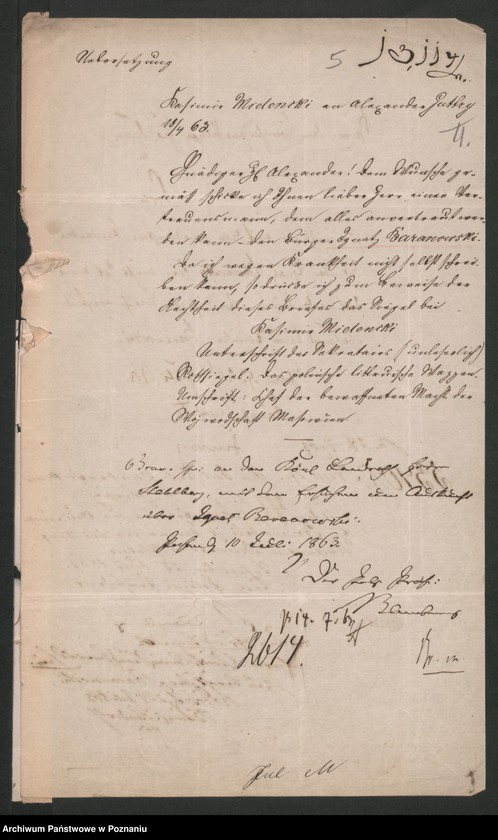 Uebersetzung
5
II.
Kasimir Mielencki an Alexander Guttry
18/4 63.
Gnädiger H Alexander! Dem Wunsche ge-
mäß schicke ich Ihnen lieber Herr einen Ver-
trauensmann, dem alles anvertraut wer-
den kann – den Bürger Ignatz Baranowski.
Da ich wegen Krankheit nicht selbst schrei-
ben kann, so drücke ich zum Beweise der
Aechtheit dieses Briefes das Siegel bei
Kasimir Mielencki
Unterschrift des Sekretairs (unleserlich)
Rothsiegel: Das polnische litauische Wappen.
Umschrift: Chef der bewaffneten Macht der
Wojewodschaft Masowien
an den Königl Landrath Herrn
Stahlberg, mit dem Ersuchen um Auskunft
über Ignatz Baranowski.
Posen d 10 Juli 1863.
Der Polizei Präs:
p 14. 7. 63
2614.
Archiwum Państwowe w Poznaniu